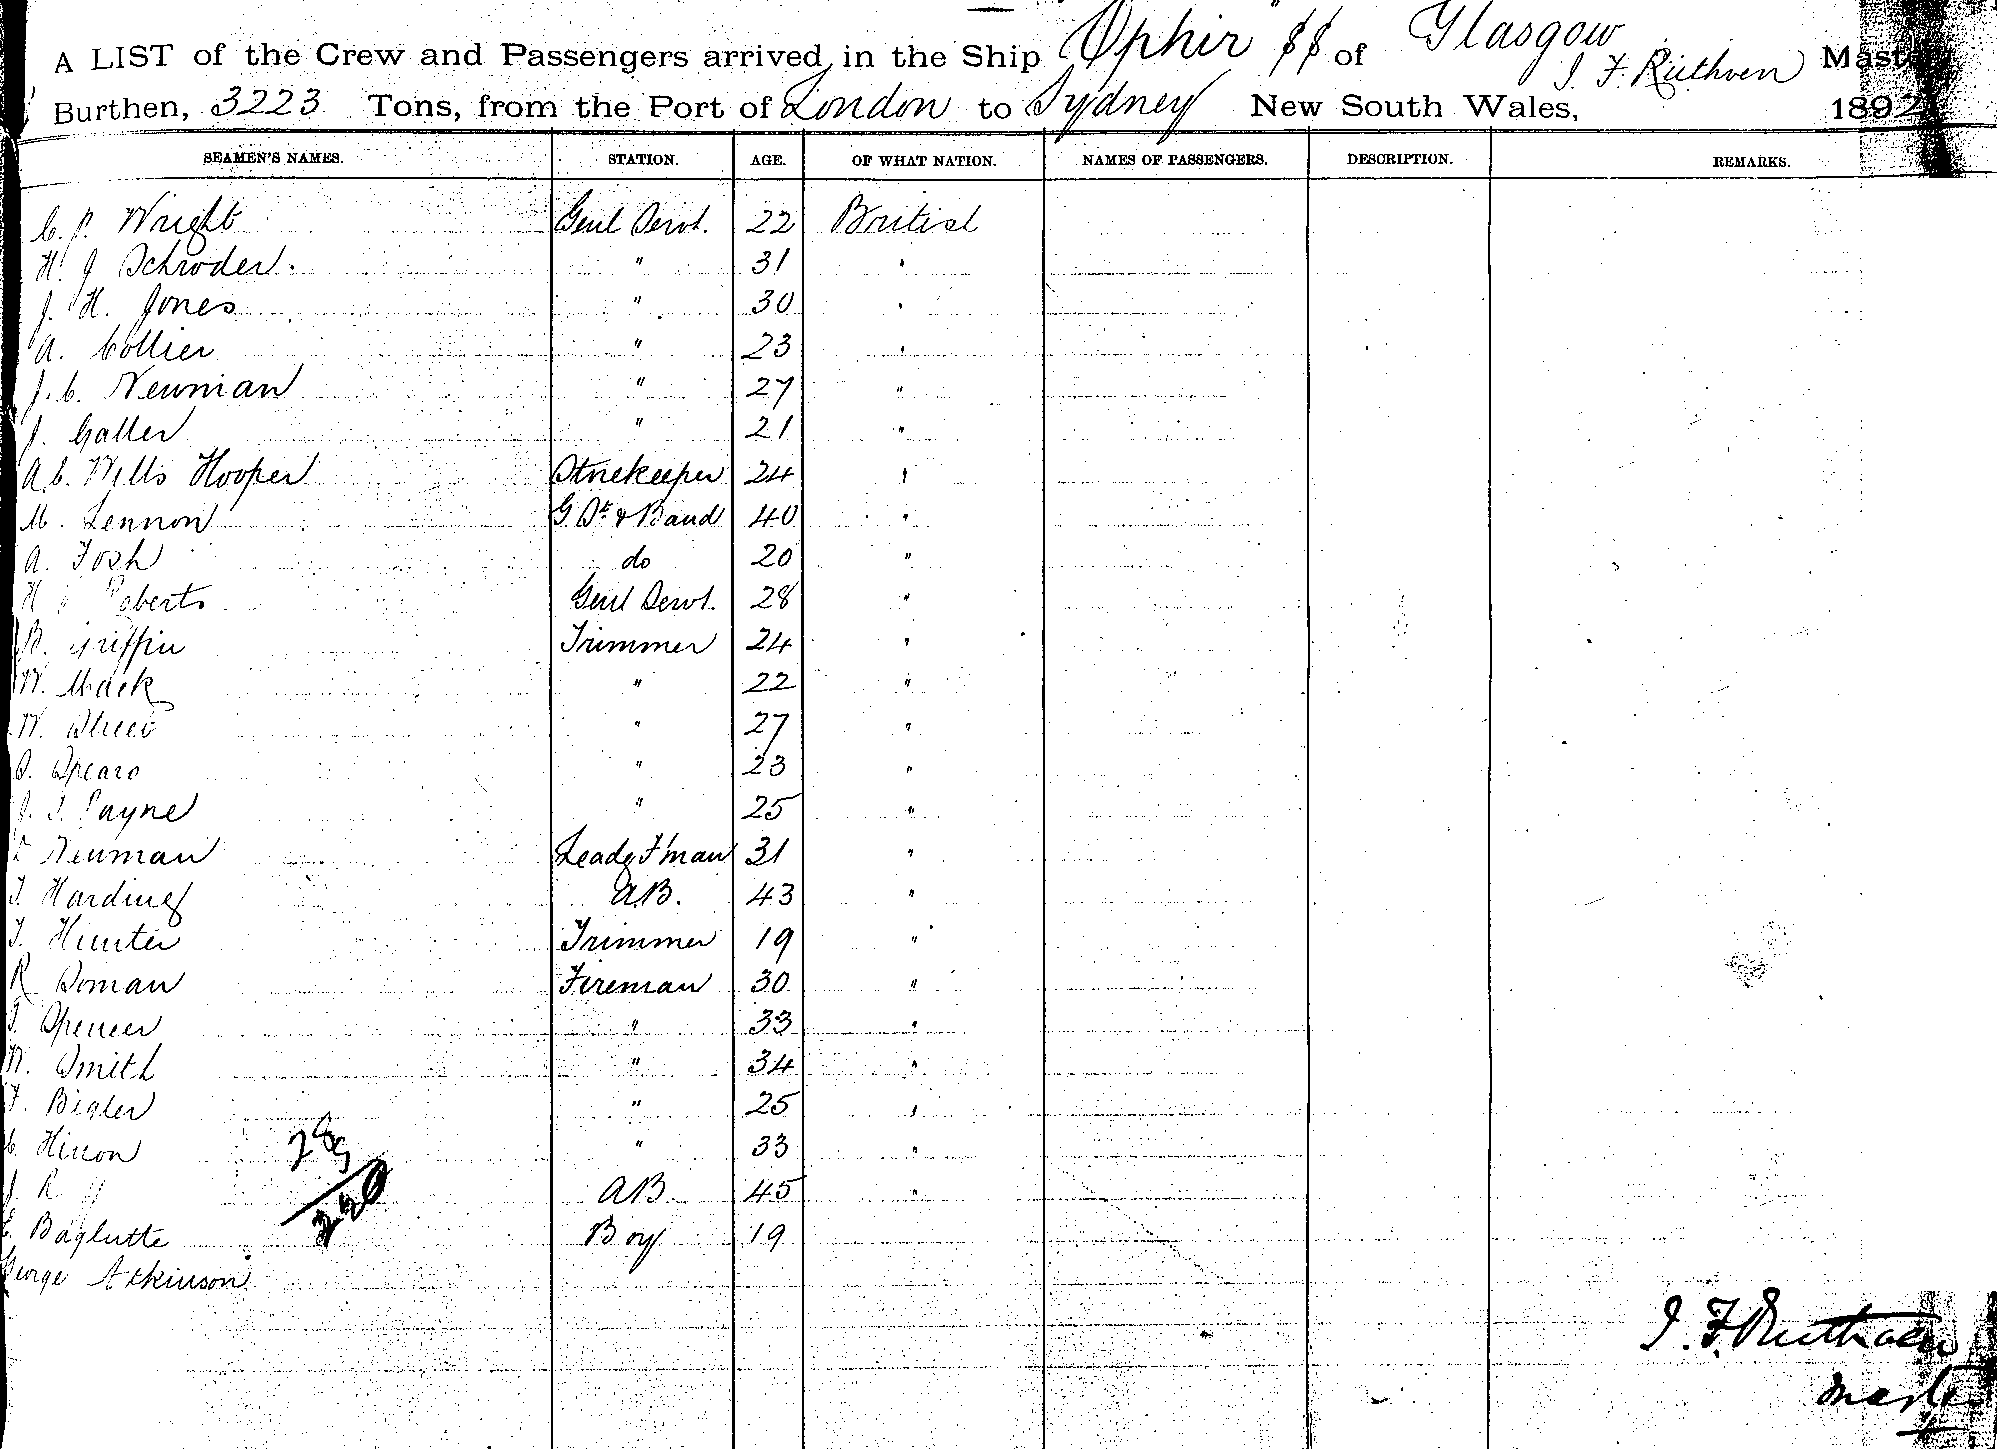 A LIST of the Crew and Passengers arrived in the Ship "Ophir" SS of Glasgow
J. F. Ruthven Master
Burthen, 3223 Tons, from the Port of London to Sydney New South Wales, 1892
SEAMEN'S NAMES. STATION. AGE. OF WHAT NATION. NAMES OF PASSENGERS. DESCRIPTION. REMARKS.
C. P. Wright Genl Servt. 22 British
H. J Schroder. " 31 "
J. H. Jones " 30 "
A. Collier " 23 "
J. C. Newman " 27 "
J. Galler " 21 "
A. C. Wells Hooper Storekeeper 24 "
M. Lennon G. St & Band 40 "
A. Tosh do 20 "
H Roberts Genl Servt. 28 "
Griffin Trimmer 24 "
W. Mack " 22 "
W. Street " 27 "
S. Spears " 23 "
Payne " 25 "
Newman Leadg F'man 31 "
T. Harding A.B. 43 "
T. Hunter Trimmer 19 "
R Doman Fireman 30 "
Spencer " 33 "
W. Smith " 34 "
F. Bigler " 25 "
C. " 33 "
J. R AB. 45 "
E. Baglutte Boy 19
George Atkinson
220
J. F. Ruthven
Master